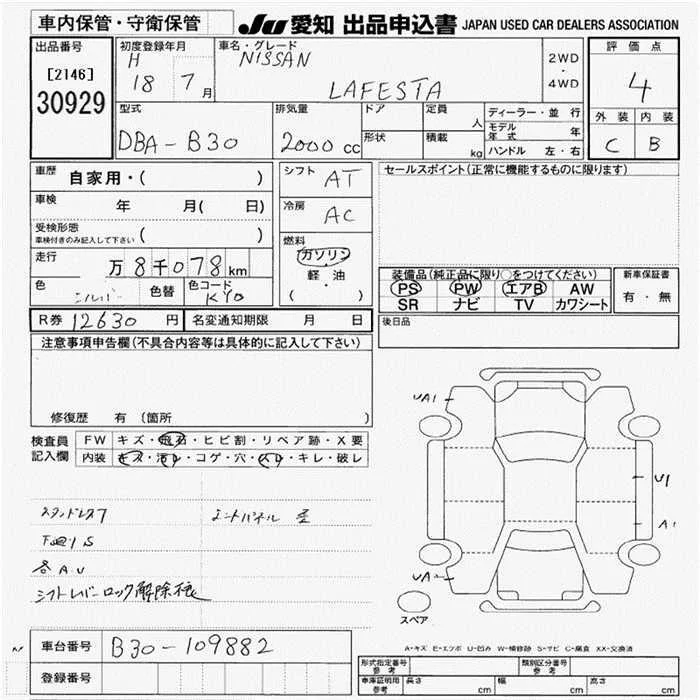 車内保管・守衛保管
JU 愛知 出品申込書 JAPAN USED CAR DEALERS ASSOCIATION
出品番号
[2146]
30929
初度登録年月
H 18 7 月
車名・グレード
NISSAN
LAFESTA
2WD
・
4WD
評価点
4
外装 内装
C B
型式
DBA-B30
排気量
2000 cc
ドア
定員
人
形状
積載
kg
ディーラー・並行
モデル年式 年
ハンドル 左・右
車歴 自家用・( )
車検 年 月( 日)
受検形態
車検付きのみ記入して下さい ( )
走行 万8千078km
色 シルバー 色替 色コード KY0
シフト AT
冷房 AC
燃料
ガソリン
軽油
( ・ )
セールスポイント(正常に機能するものに限ります)
装備品(純正品に限り○をつけてください)
PS PW エアB AW
SR ナビ TV カワシート
新車保証書
有・無
R券 12630 円 名変通知期限 月 日
後日品
注意事項申告欄(不具合内容等は具体的に記入して下さい)
修復歴 有 (箇所 )
検査員記入欄
FW キズ・飛石・ヒビ割・リペア跡・X要
内装 キズ・汚れ・コゲ・穴・スレ・キレ・破レ
UA1
U1
A1
UA
スペア
スタッドレス7
各AU
シフトレバーロック解除
A-キズ E-エクボ U-凹み W-補修跡 S-サビ C-腐食 XX-交換済
車台番号 B30-109882
登録番号
型式指定番号 参考
類別区分番号 参考
車庫証明用 参考 長さ cm 幅 cm 高さ cm